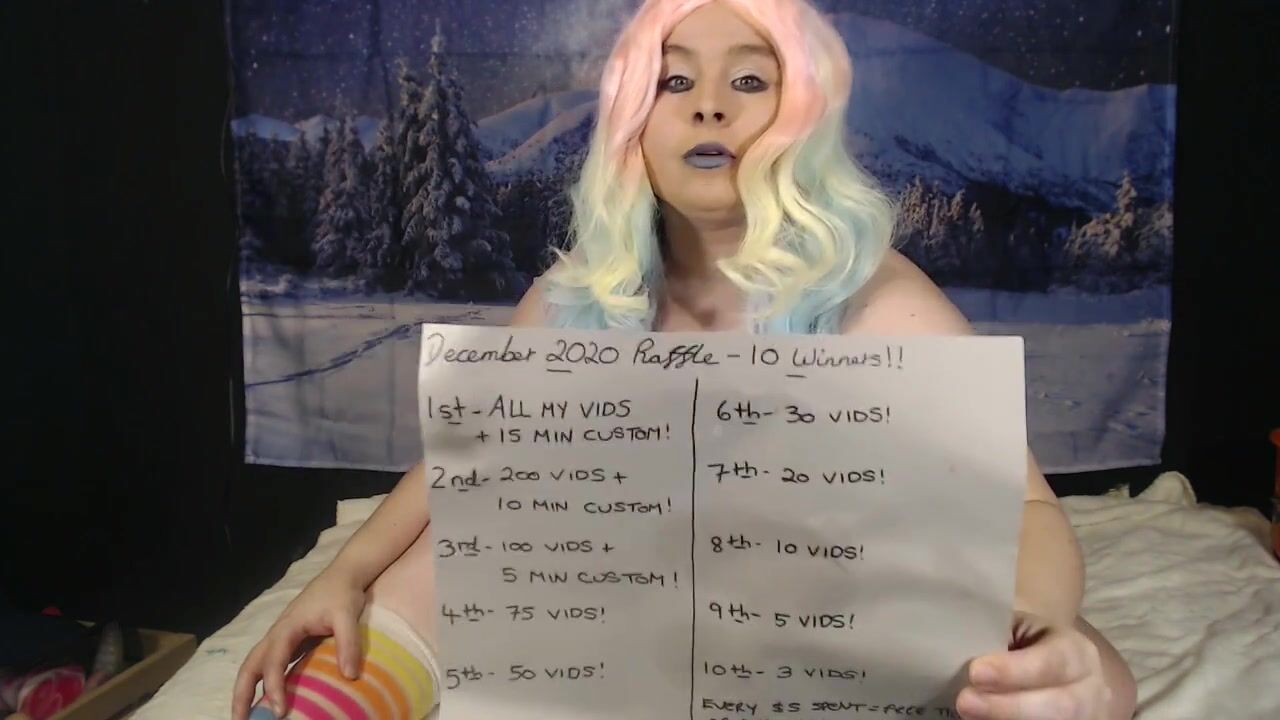 December 2020 Raffle - 10 Winners!!
1st - ALL MY VIDS
+ 15 MIN CUSTOM!
2nd - 200 VIDS +
10 MIN CUSTOM!
3rd - 100 VIDS +
5 MIN CUSTOM!
4th - 75 VIDS!
5th - 50 VIDS!
6th - 30 VIDS!
7th - 20 VIDS!
8th - 10 VIDS!
9th - 5 VIDS!
10th - 3 VIDS!
EVERY $5 SPENT = FREE